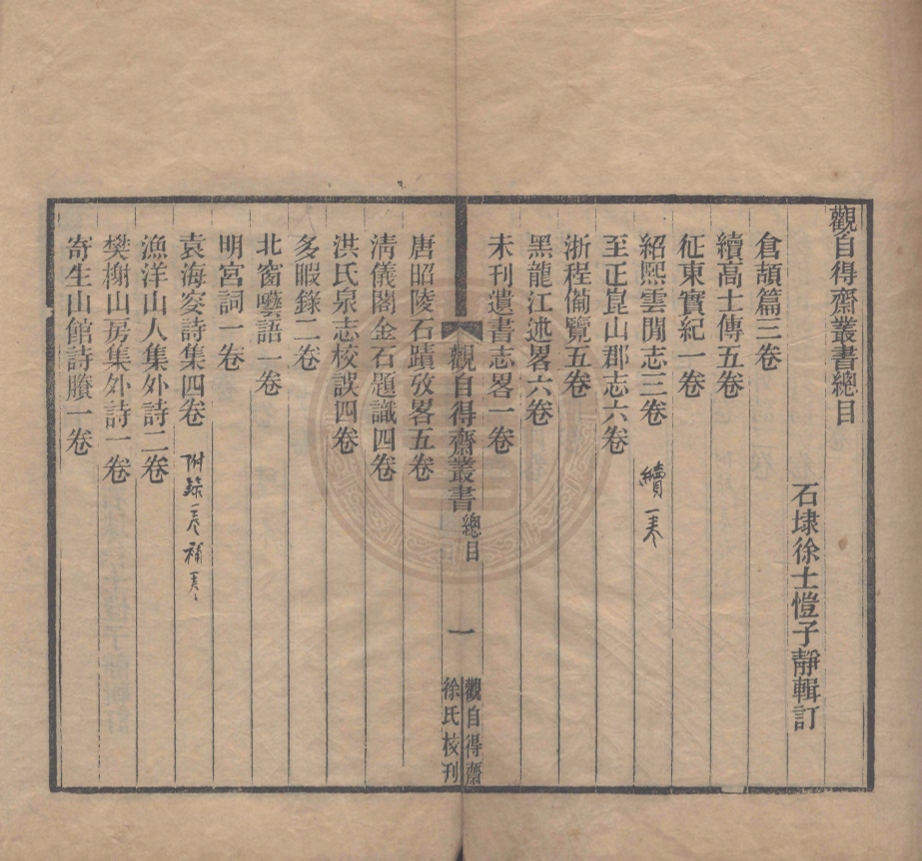 觀自得齋叢書總目
石埭徐士愷子靜輯訂
倉頡篇三卷
續高士傳五卷
征東實紀一卷
紹熙雲閒志三卷 續一卷
至正崑山郡志六卷
浙程僃覽五卷
黑龍江述畧六卷
未刊遺書志畧一卷
觀自得齋叢書 總目
一
觀自得齋
徐氏校刊
唐昭陵石蹟攷畧五卷
清儀閣金石題識四卷
洪氏泉志校誤四卷
多暇錄二卷
北窗囈語一卷
明宮詞一卷
袁海叟詩集四卷 附錄一卷補一卷
漁洋山人集外詩二卷
樊榭山房集外詩一卷
寄生山館詩賸一卷